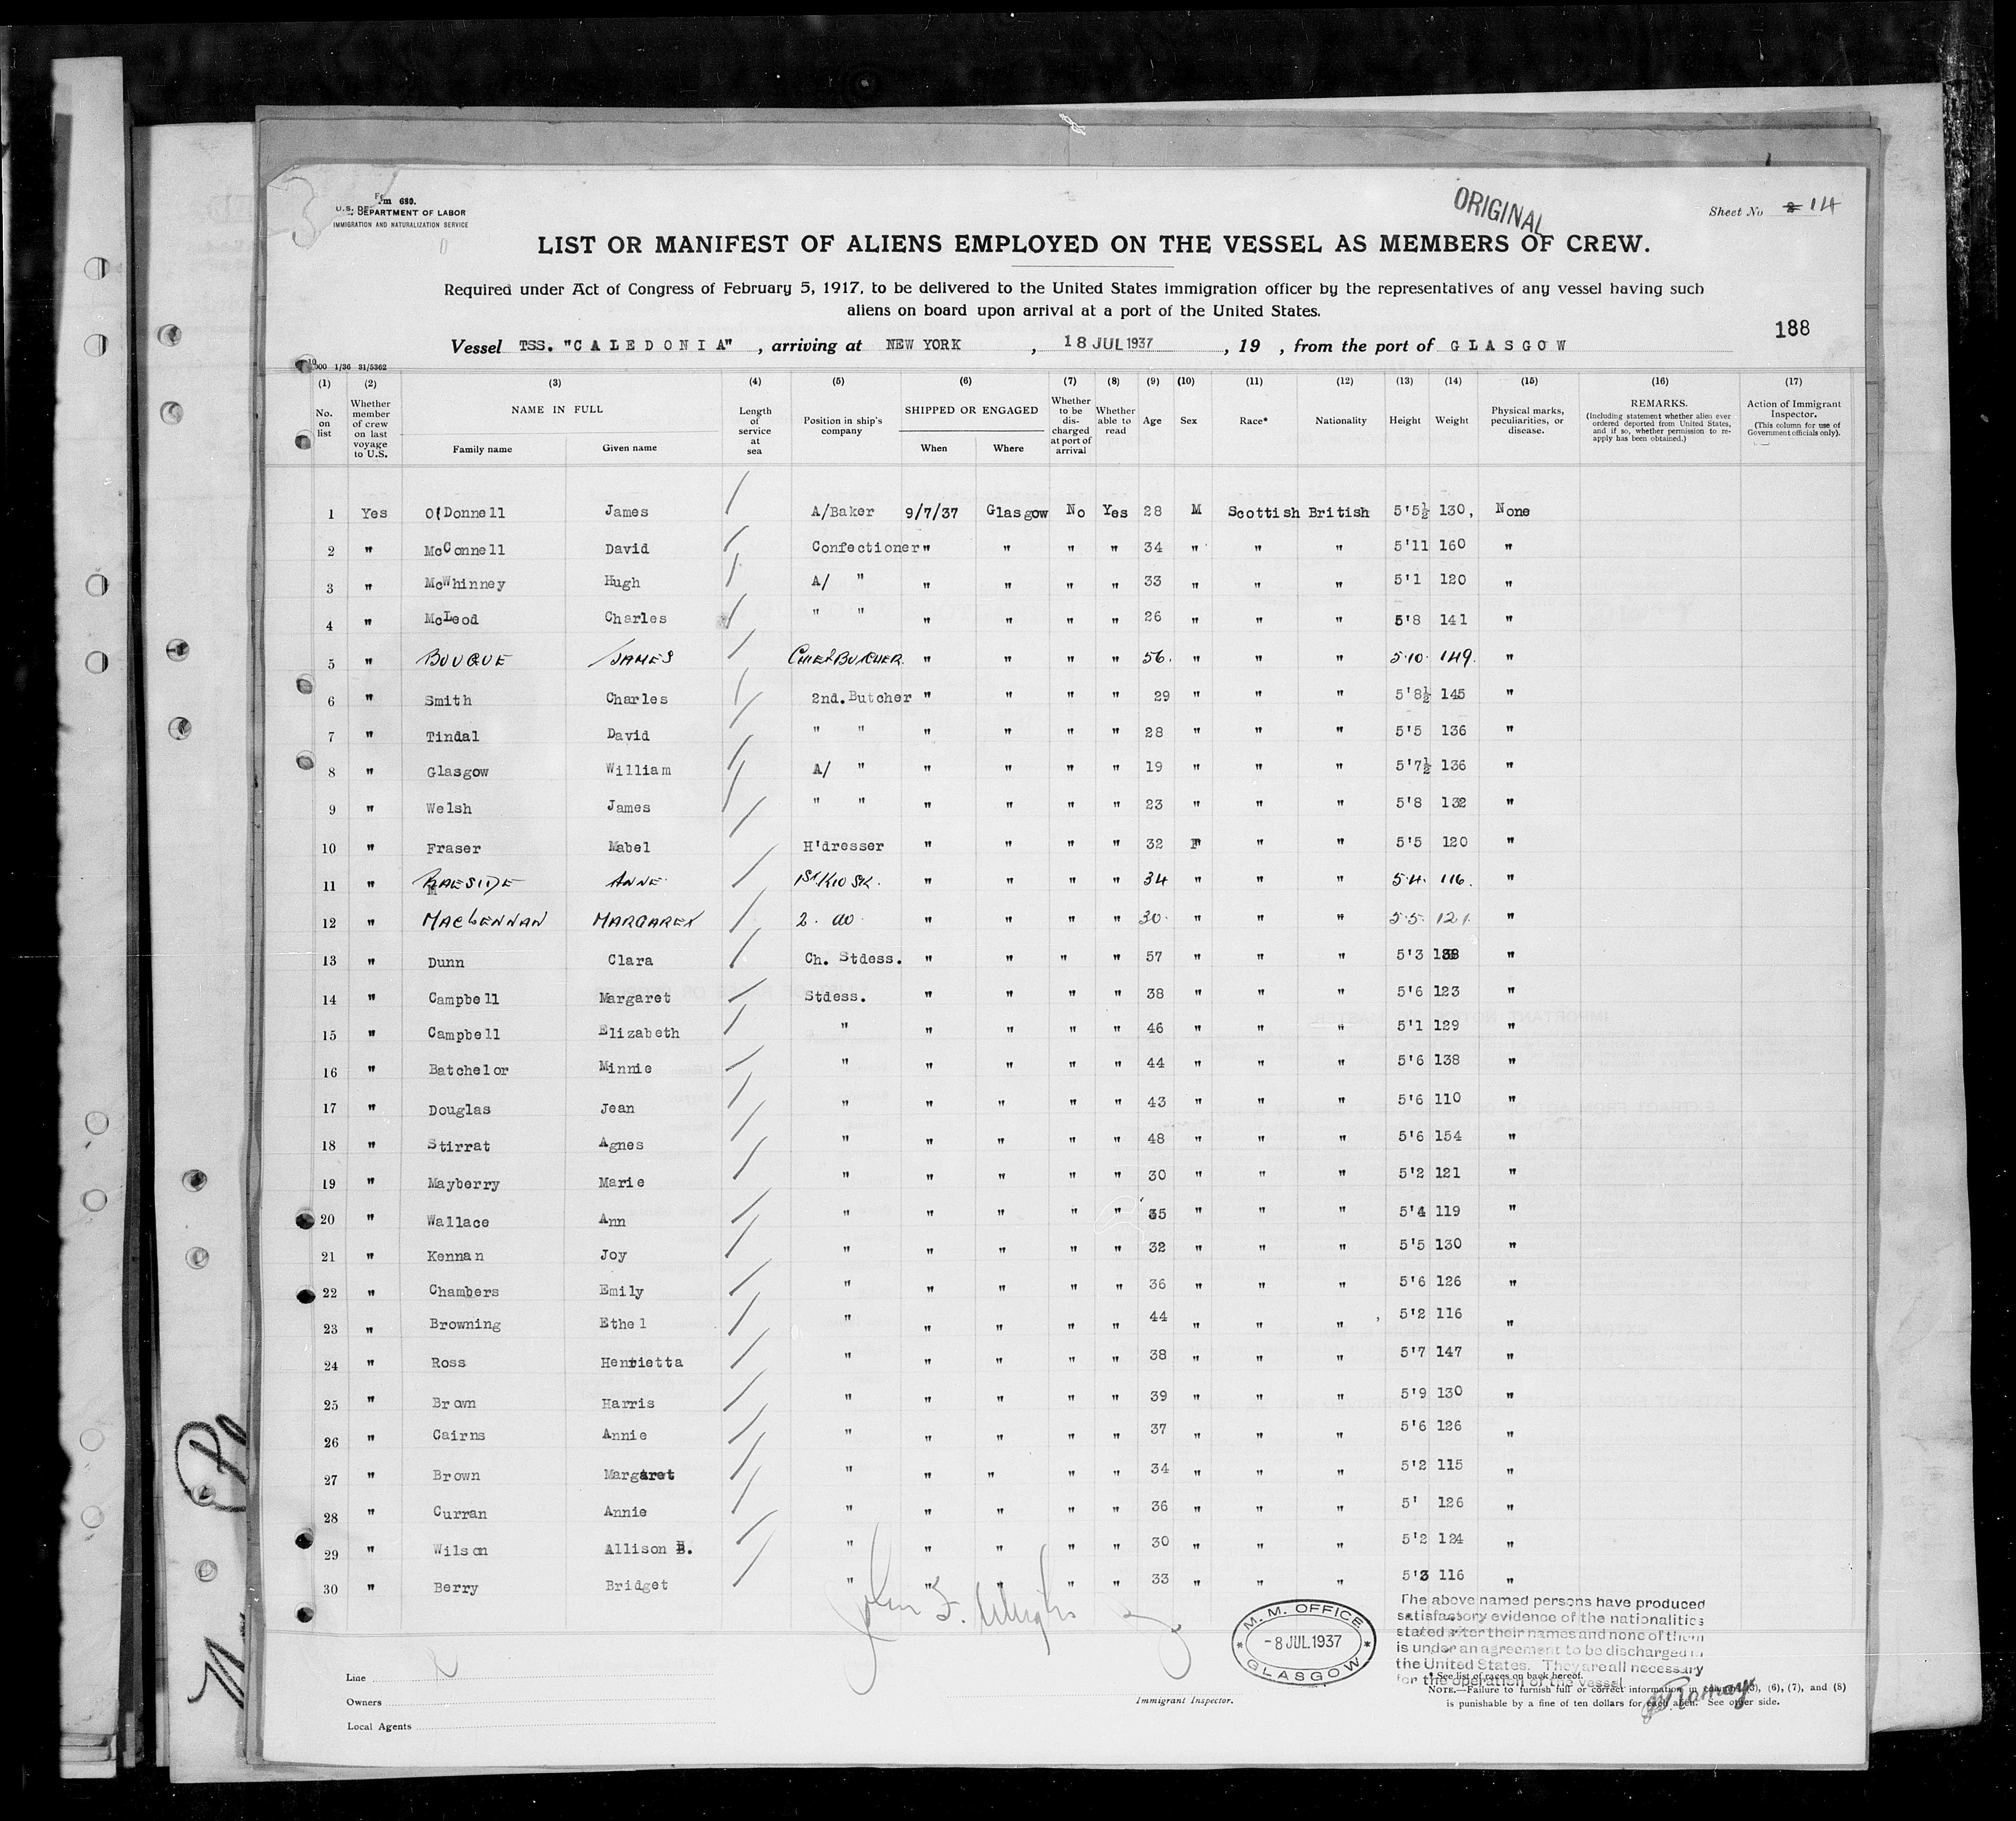 Form 680.
U.S. DEPARTMENT OF LABOR
IMMIGRATION AND NATURALIZATION SERVICE
ORIGINAL
Sheet No 14
LIST OR MANIFEST OF ALIENS EMPLOYED ON THE VESSEL AS MEMBERS OF CREW.
Required under Act of Congress of February 5, 1917, to be delivered to the United States immigration officer by the representatives of any vessel having such
aliens on board upon arrival at a port of the United States.
188
Vessel TSS. "CALEDONIA" , arriving at NEW YORK , 18 JUL 1937 , 19 , from the port of GLASGOW
1/36 31/5362
(1) (2) (3) (4) (5) (6) (7) (8) (9) (10) (11) (12) (13) (14) (15) (16) (17)
No. on list
Whether member of crew on last voyage to U.S.
NAME IN FULL
Family name Given name
Length of service at sea
Position in ship's company
SHIPPED OR ENGAGED
When Where
Whether to be discharged at port of arrival
Whether able to read
Age Sex Race* Nationality Height Weight
Physical marks, peculiarities, or disease.
REMARKS.
(Including statement whether alien ever ordered deported from United States, and if so, whether permission to reapply has been obtained.)
Action of Immigrant Inspector.
(This column for use of Government officials only).
1 Yes O'Donnell James A/Baker 9/7/37 Glasgow No Yes 28 M Scottish British 5'5½ 130, None
2 " McConnell David Confectioner " " " " 34 " " " 5'11 160 "
3 " McWhinney Hugh A/ " " " " " 33 " " " 5'1 120 "
4 " McLeod Charles " " " " " " 26 " " " 5'8 141 "
5 " BOUQUE JAMES CHIEF BUTCHER. " " " " 56. " " " 5.10. 149. "
6 " Smith Charles 2nd. Butcher " " " " 29 " " " 5'8½ 145 "
7 " Tindal David " " " " " " 28 " " " 5'5 136 "
8 " Glasgow William A/ " " " " " 19 " " " 5'7½ 136 "
9 " Welsh James " " " " " " 23 " " " 5'8 132 "
10 " Fraser Mabel H'dresser " " " " 32 F " " 5'5 120 "
11 " RAESIDE ANNE 1st KIOSK. " " " " 34 " " " 5.4. 116. "
12 " MACLENNAN MARGARET 2. do " " " " 30. " " " 5.5. 121. "
13 " Dunn Clara Ch. Stdess. " " " " 57 " " " 5'3 "
14 " Campbell Margaret Stdess. " " " " 38 " " " 5'6 123 "
15 " Campbell Elizabeth " " " " " 46 " " " 5'1 129 "
16 " Batchelor Minnie " " " " " 44 " " " 5'6 138 "
17 " Douglas Jean " " " " " 43 " " " 5'6 110 "
18 " Stirrat Agnes " " " " " 48 " " " 5'6 154 "
19 " Mayberry Marie " " " " " 30 " " " 5'2 121 "
20 " Wallace Ann " " " " " 35 " " " 5'4 119 "
21 " Kennan Joy " " " " " 32 " " " 5'5 130 "
22 " Chambers Emily " " " " " 36 " " " 5'6 126 "
23 " Browning Ethel " " " " " 44 " " " 5'2 116 "
24 " Ross Henrietta " " " " " 38 " " " 5'7 147 "
25 " Brown Harris " " " " " 39 " " " 5'9 130 "
26 " Cairns Annie " " " " " 37 " " " 5'6 126 "
27 " Brown Margaret " " " " " 34 " " " 5'2 115 "
28 " Curran Annie " " " " " 36 " " " 5' 126 "
29 " Wilson Allison B. " " " " " 30 " " " 5'2 124 "
30 " Berry Bridget " " " " " 33 " " " 5'3 116 "
The above named persons have produced
satisfactory evidence of the nationalities
stated after their names and none of them
is under an agreement to be discharged in
the United States. They are all necessary
for the operation of the vessel
M. M. OFFICE
-8 JUL. 1937
GLASGOW
John F.
Line
Owners
Local Agents
Immigrant Inspector.
* See list of races on back hereof.
NOTE.—Failure to furnish full or correct information in columns (3), (6), (7), and (8)
is punishable by a fine of ten dollars for each alien. See other side.